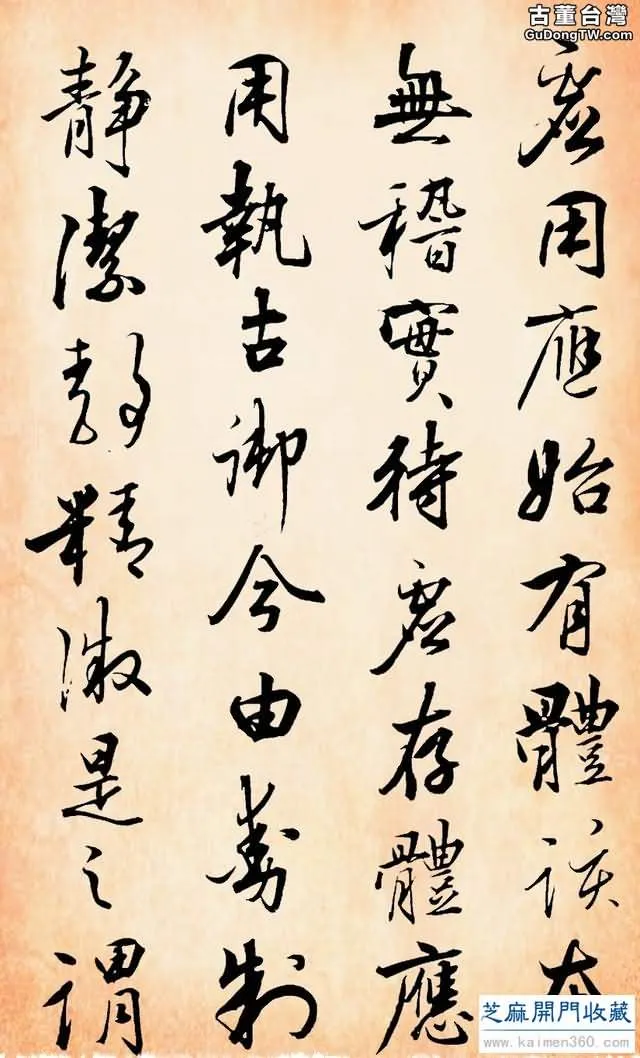 古董台灣
GuDongTW.com
虛用應始有體該本
無稽實待虛存體應
用執古御今由動制
靜潔靜精微是之謂
芝麻開門收藏
www.kaimen360.com